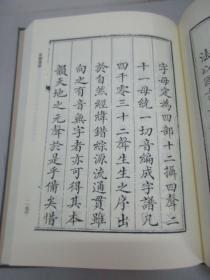 字母定為四部十二攝四聲二
十一母統一切音編成字譜凡
四千零三十二聲生生之序出
於自然經緯錯綜源流通貫雖
向之有音無字者亦可得其本
韻天地之元聲於是乎備矣惜